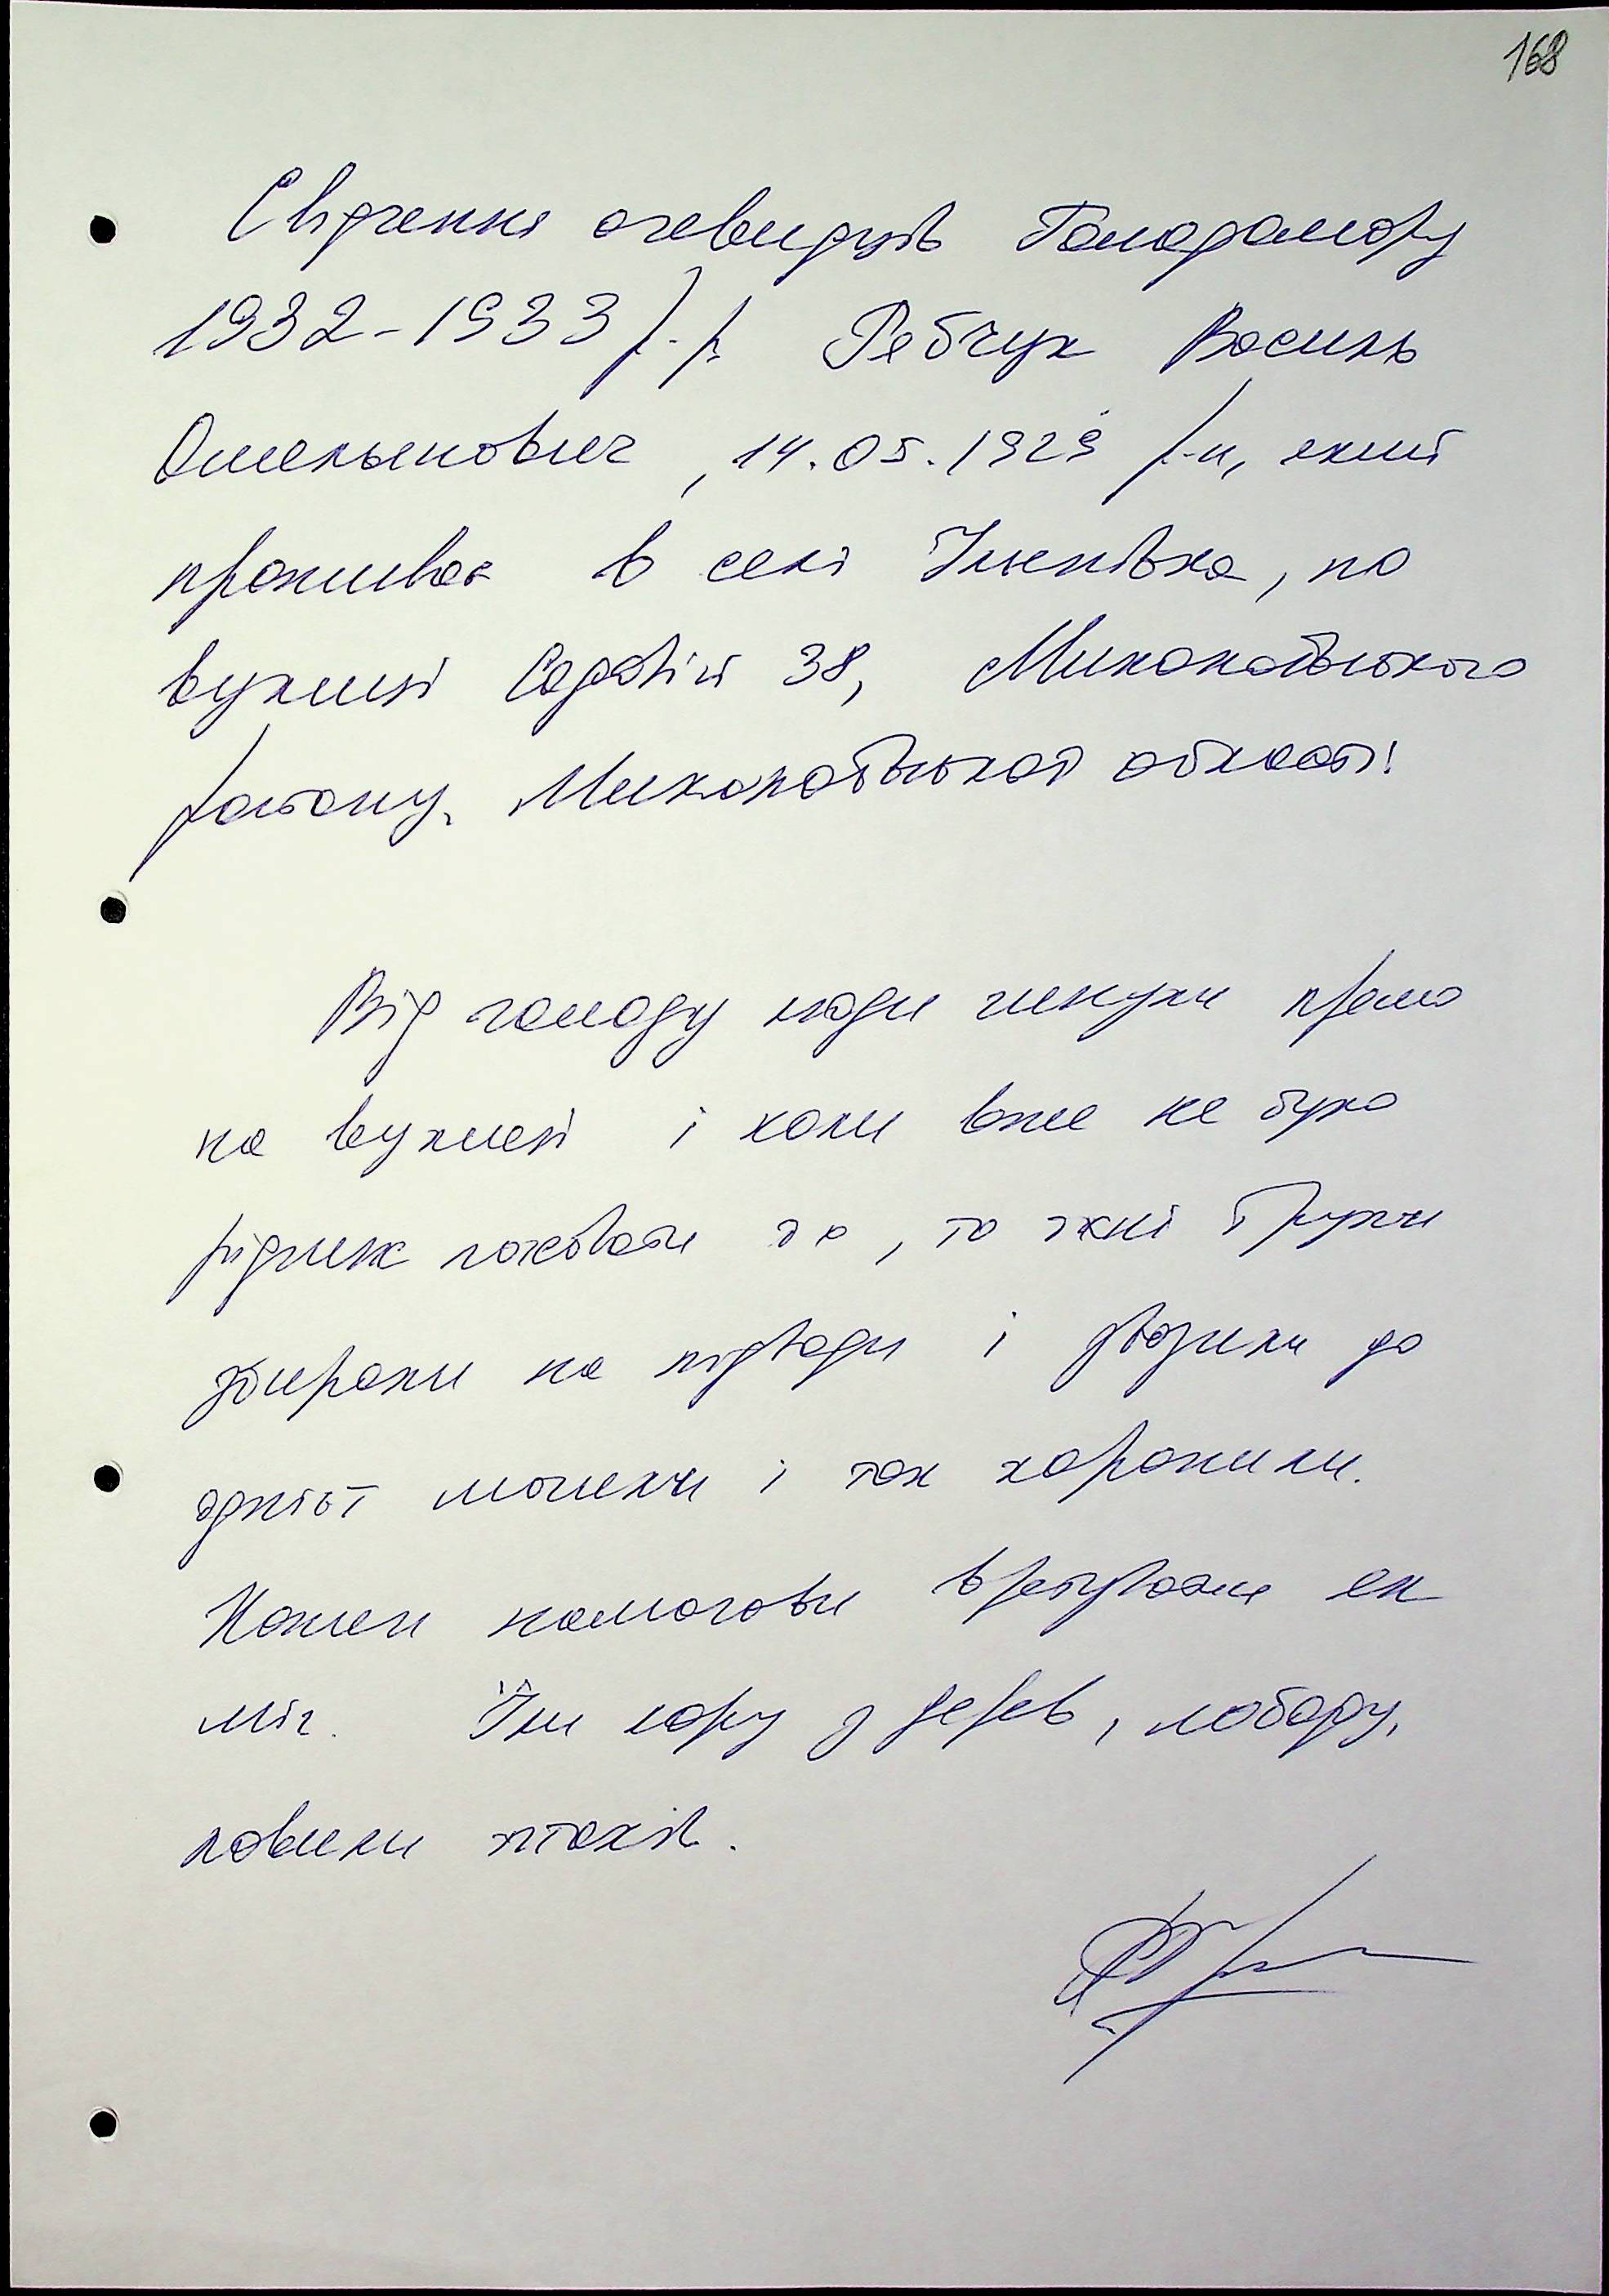 168
Свідчення очевидців Голодомору
1932-1933 р.р. Рябчук Василь
Омельянович, 14.05.1929 р.н, який
проживає в селі Ульянівка, по
вулиці Садовій 38, Миколаївського
району, Миколаївської області!
Від голоду люди гинули прямо
на вулиці і коли вже не було
рідних ховати то, то їхні трупи
збирали на підводи і звозили до
однієї могили і так хоронили.
Кожен намагався врятуватись як
міг. Їли кору з дерев, лободу,
ловили птахів.